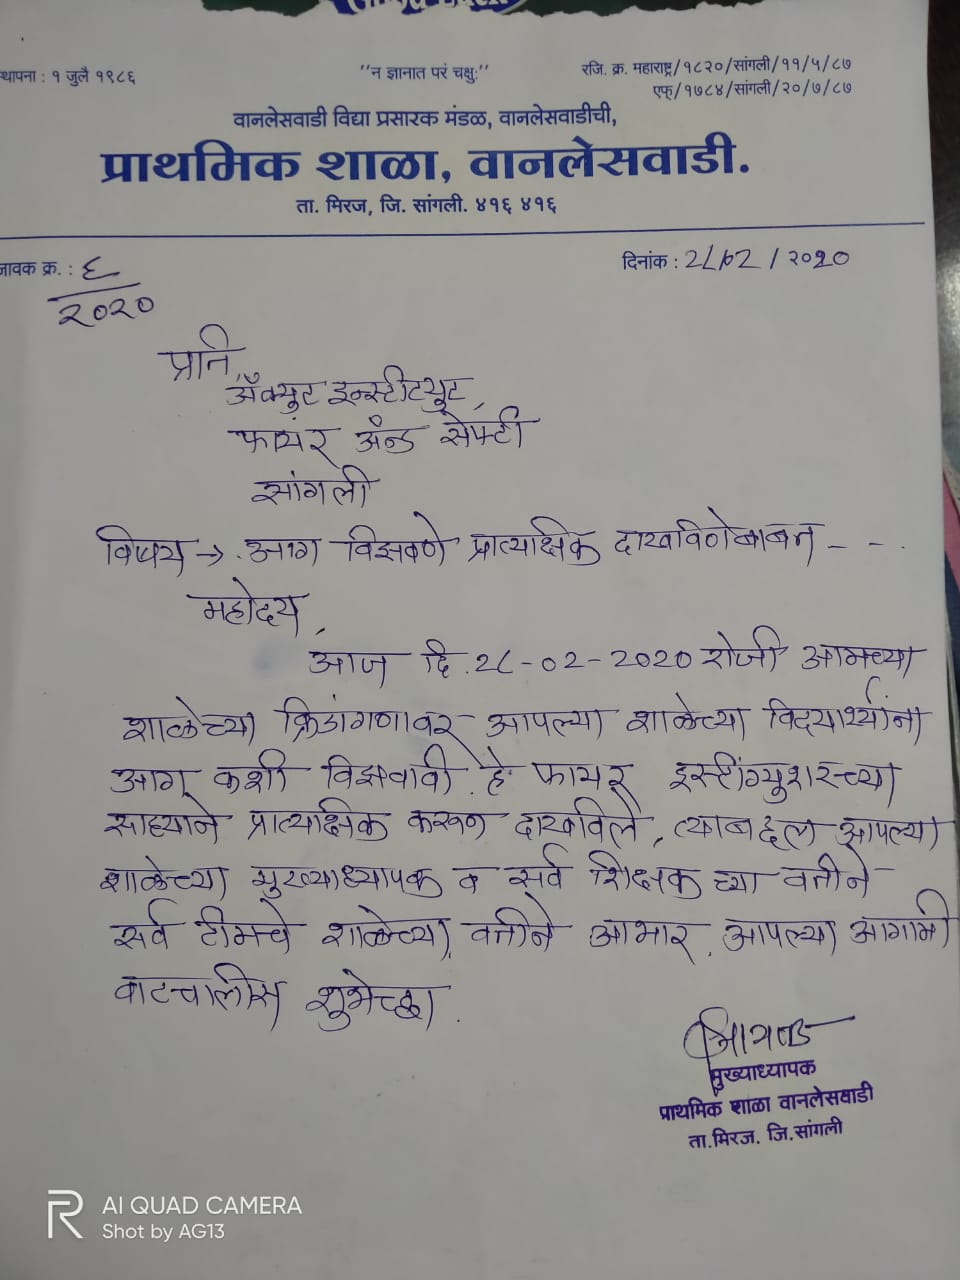 स्थापना : १ जुलै १९८६
"न ज्ञानात परं चक्षुः"
रजि. क्र. महाराष्ट्र/१८२०/सांगली/११/५/८७
एफ्/१७८४/सांगली/२०/७/८७
वानलेसवाडी विद्या प्रसारक मंडळ, वानलेसवाडीची,
प्राथमिक शाळा, वानलेसवाडी.
ता. मिरज, जि. सांगली. ४१६ ४१६
जावक क्र. : ६/२०२०
दिनांक : 2८/०२/२०२०
प्रति,
ॲक्युट इन्स्टीटयुट,
फायर ॲन्ड सेफ्टी
सांगली
विषय → आग विझवणे प्रात्याक्षिक दाखविणेबाबत - - .
महोदय,
आज दि. 2८-०2-2०2० रोजी आमच्या
शाळेच्या क्रिडांगणावर आपल्या शाळेच्या विदयार्थ्यांना
आग कशी विझवावी हे फायर इस्टींग्युशरच्या
साह्याने प्रात्याक्षिक करून दाखविले, त्याबद्दल आपल्या
शाळेच्या मुख्याध्यापक व सर्व शिक्षक च्या वतीने
सर्व टीमचे शाळेच्या वतीने आभार. आपल्या आगामी
वाटचालीस शुभेच्छा.
मुख्याध्यापक
प्राथमिक शाळा वानलेसवाडी
ता.मिरज. जि.सांगली
AI QUAD CAMERA
Shot by AG13